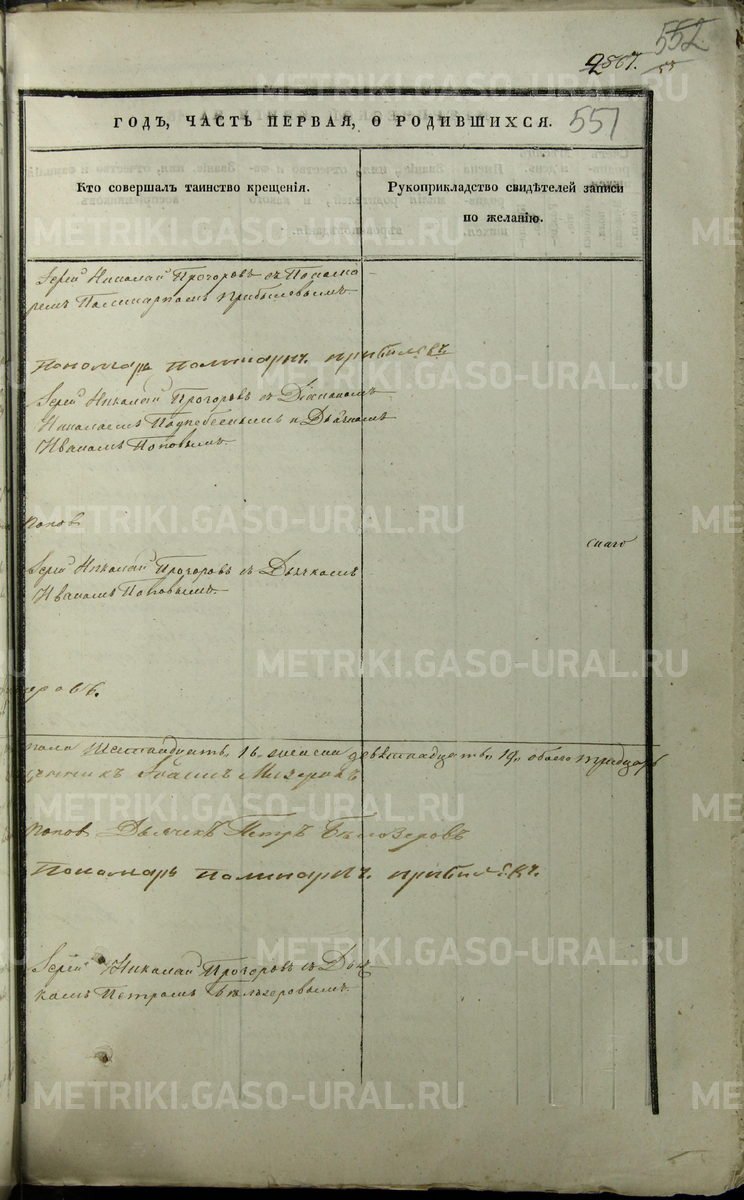 552
2507.
ГОДЪ, ЧАСТЬ ПЕРВАЯ, О РОДИВШИХСЯ.
551
Кто совершалъ таинство крещенія.
Рукоприкладство свидѣтелей записи
по желанію.
Іерей Николай Прозоровъ съ Понома
ремъ Поликарпомъ Прибылевымъ
Пономарь Поликарпъ Прибылевъ
Іерей Николай Прозоровъ съ Діакономъ
Николаемъ Поднебеснымъ и Дьячкомъ
Иваномъ Поповымъ
Попов
Іерей Николай Прозоровъ съ Дьячкомъ
Иваномъ Поповымъ
пола шестнадцать 16. женска девятнадцать 19. обоего тридцать
Іоаннъ
Попов Дьячекъ Петръ Бѣлозеровъ
Пономарь Поликарпъ Прибылевъ.
Іерей Николай Прозоровъ съ Дьяч
комъ Петромъ Бѣлозеровымъ
METRIKI.GASO-URAL.RU